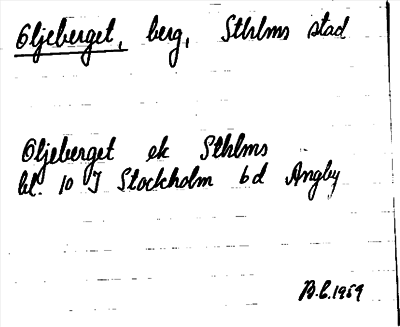 Oljeberget, berg, Sthlms stad
Oljeberget ek Sthlms
bl. 10 I Stockholm bd Ängby
B.L. 1959